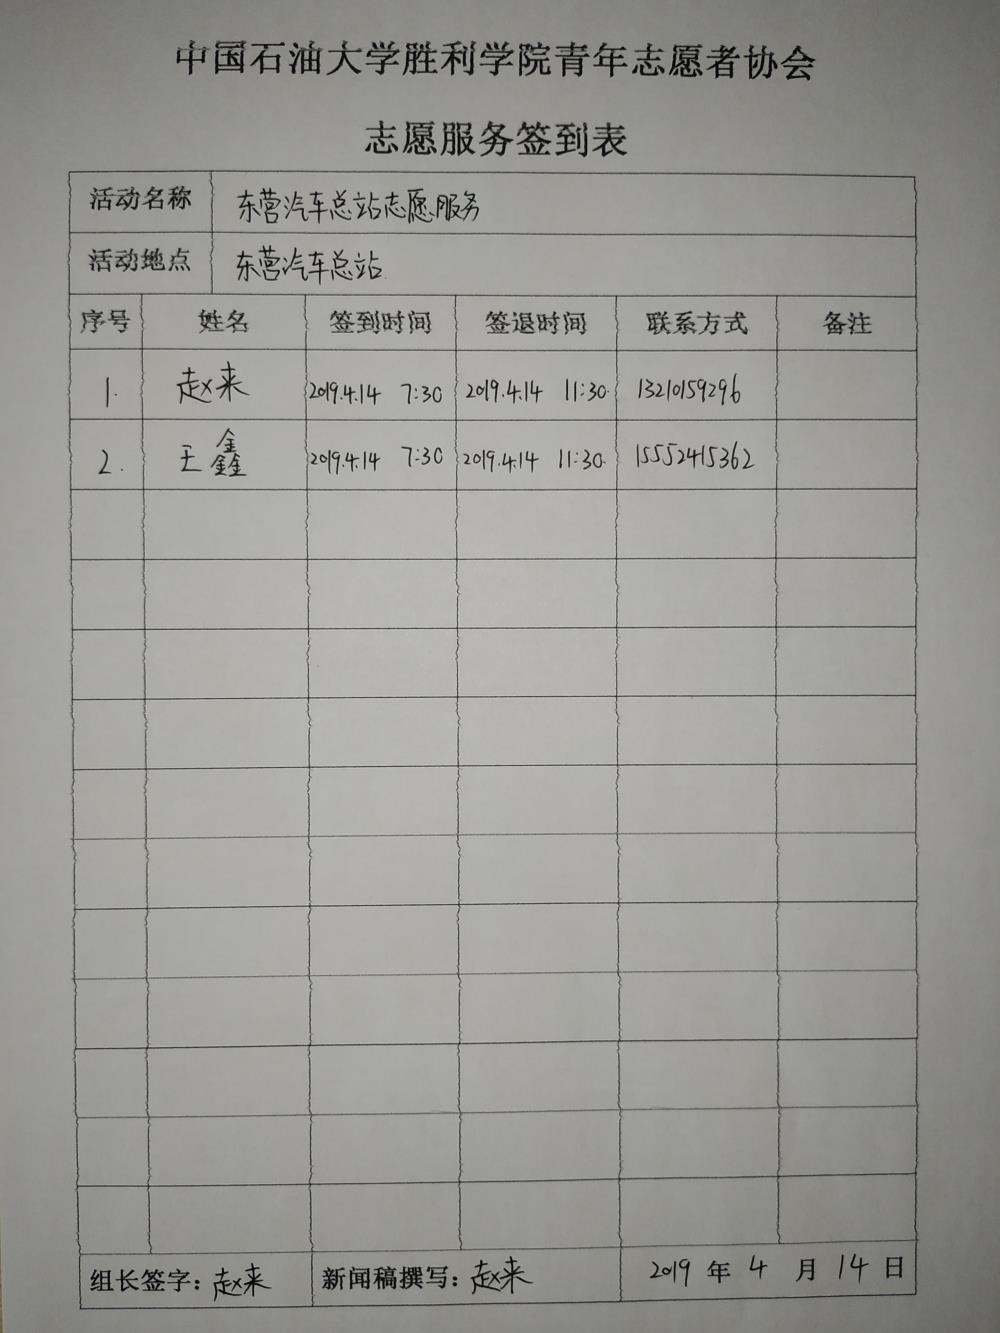 中国石油大学胜利学院青年志愿者协会
志愿服务签到表
活动名称 东营汽车总站志愿服务
活动地点 东营汽车总站
序号 姓名 签到时间 签退时间 联系方式 备注
1. 赵来 2019.4.14 7:30 2019.4.14 11:30 13210159296
2. 王鑫 2019.4.14 7:30 2019.4.14 11:30 15552415362
组长签字：赵来 新闻稿撰写：赵来 2019 年 4 月 14 日